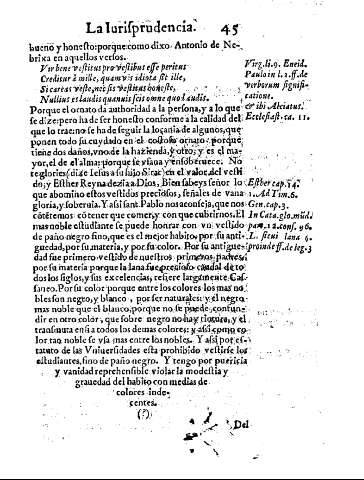 La Iurisprudencia. 45
bueno y honesto: porque como dixo Antonio de Ne-
brixa en aquellos versos.
Vir bene vestitus pro vestibus esse peritus
Creditur à mille, quamvis idiota sit ille,
Si careas veste, nec sis vestitus honeste,
Nullius est laudis quamvis scis omne quod audis.
Porque el ornato dà authoridad a la persona, y a lo que
se dize: pero ha de ser honesto conforme a la calidad del
que lo trae: no se ha de seguir la loçania de algunos, que
ponen todo su cuydado en el costoso ornato: porque
tiene dos daños, vno de la hazienda, y otro, y es el ma-
yor, el de el alma: porque se vfaua y ensoberuece. No
te glories (dize Iesus a su hijo Sirac) en el valor del vesti
do; y Esther Reyna dezia a Dios, Bien sabeys señor lo
que abomino estos vestidos preciosos, señales de vana
gloria, y soberuia. Y assi sant Pablo nos aconseja, que nos
cōtētemos cō tener que comer, y con que cubrirnos. El
mas noble estudiante se puede honrar con vn vestido
de paño negro fino, que es el mejor habito, por su anti-
guedad, por su materia, y por su color. Por su antigue-
dad fue primero vestido de nuestros primeros padres:
por su materia porque la lana fue precioso caudal de to
dos los siglos, y sus excelencias, refiere largamente Cas-
saneo. Por su color porque entre colores los mas no-
bles son negro, y blanco, por ser naturales: y el negro
mas noble que el blanco, porque no se puede confun-
dir en otro color, que sobre negro no hay tintura, y el
transmuta en si a todos los demas colores: y assi como co
lor tan noble se vsa mas entre los nobles. Y assi por es-
tatuto de las Vniuersidades esta prohibido vestirse los
estudiantes, sino de paño negro. Y tengo por puericia
y vanidad reprehensible violar la modestia y
grauedad del habito con medias de
colores inde-
centes.
(?)
Del
Virg. li. 9. Eneid.
Paulo in l. 2. ff. de
verborum signifi-
catione.
& ibi Alciatus.
Ecclesiast. ca. 11.
Esther cap. 14.
1. Ad Tim. 6.
Gen. cap. 3.
In Cata. glo. mūd.
par. 12. cons. 96.
L. sicui lana 4.
proinde ff. de leg. 3